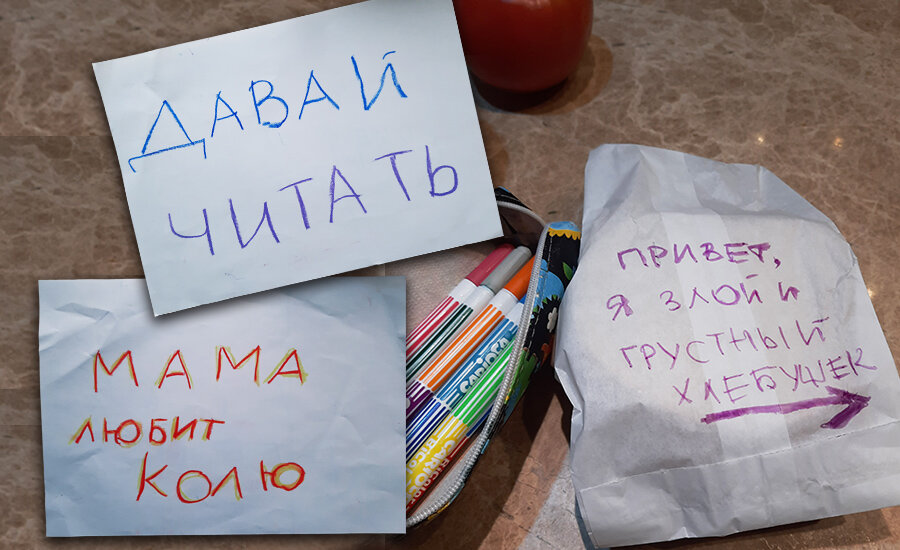 ДАВАЙ
ЧИТАТЬ
МАМА
ЛЮБИТ
КОЛЮ
ПРИВЕТ,
Я ЗЛОЙ И
ГРУСТНЫЙ
ХЛЕБУШЕК
CARIOCA
CARIOCA